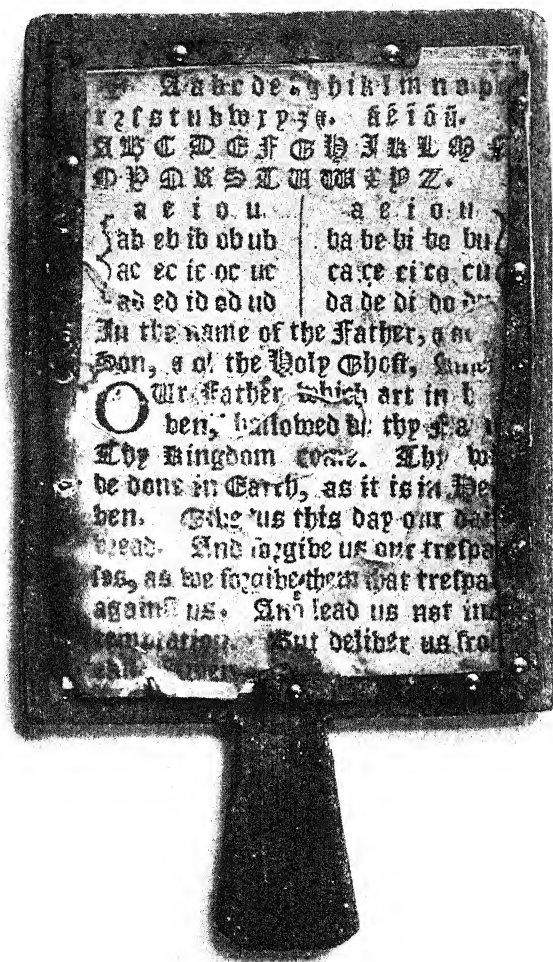 A a b c d e f g h i k l m n o p
r ꝛ ſ s t u v w x y z &. ã ẽ ĩ õ ũ.
A B C D E F G H I K L M
O P Q R S T U W X Y Z.
a e i o u a e i o u
ab eb ib ob ub ba be bi bo bu
ac ec ic oc uc ca ce ci co cu
ad ed id od ud da de di do du
In the name of the Father, &
Son, & of the Holy Ghoſt,
OUr Father which art in
ven, hallowed be thy
Thy Kingdom come. Thy
be done in Earth, as it is in Hea
ven. Give us this day our dai
bread. And forgive us our treſpaſ
ſes, as we forgive them that treſpaſ
againſt us. And lead us not into
temptation. But deliver us from